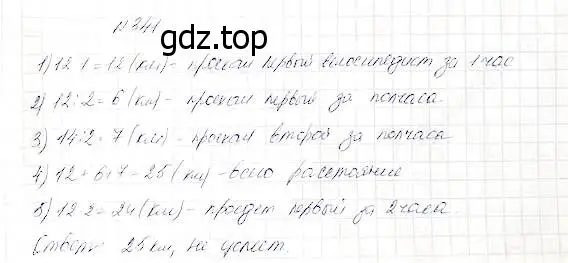 №341
gdz.top
1) 12·1=12 (км) - проехал первый велосипедист за 1 час
2) 12:2=6 (км) - проехал первый за полчаса
3) 14:2=7 (км) - проехал второй за полчаса
4) 12+6+7=25 (км) - всего расстояние
5) 12·2=24 (км) - проедет первый за 2 часа.
Ответ: 25 км, не успеет.